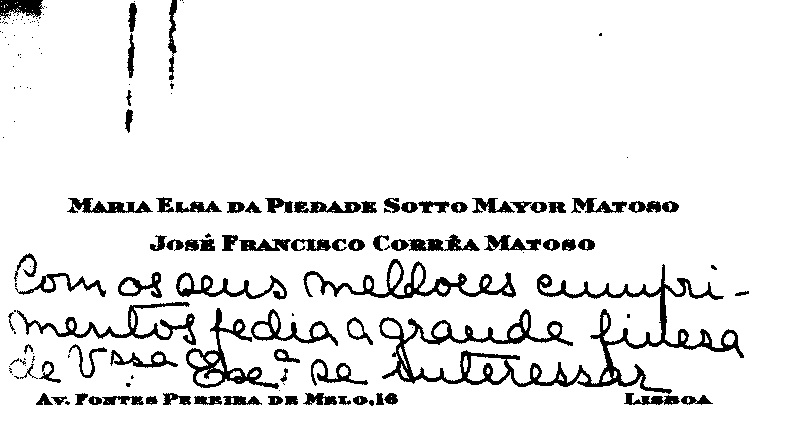 MARIA ELSA DA PIEDADE SOTTO MAYOR MATOSO
JOSÉ FRANCISCO CORRÊA MATOSO
Com os seus melhores cumpri-
mentos pedia a grande finesa
de V.ssa Exe.ª se interessar
AV. FONTES PEREIRA DE MELO,16 LISBOA